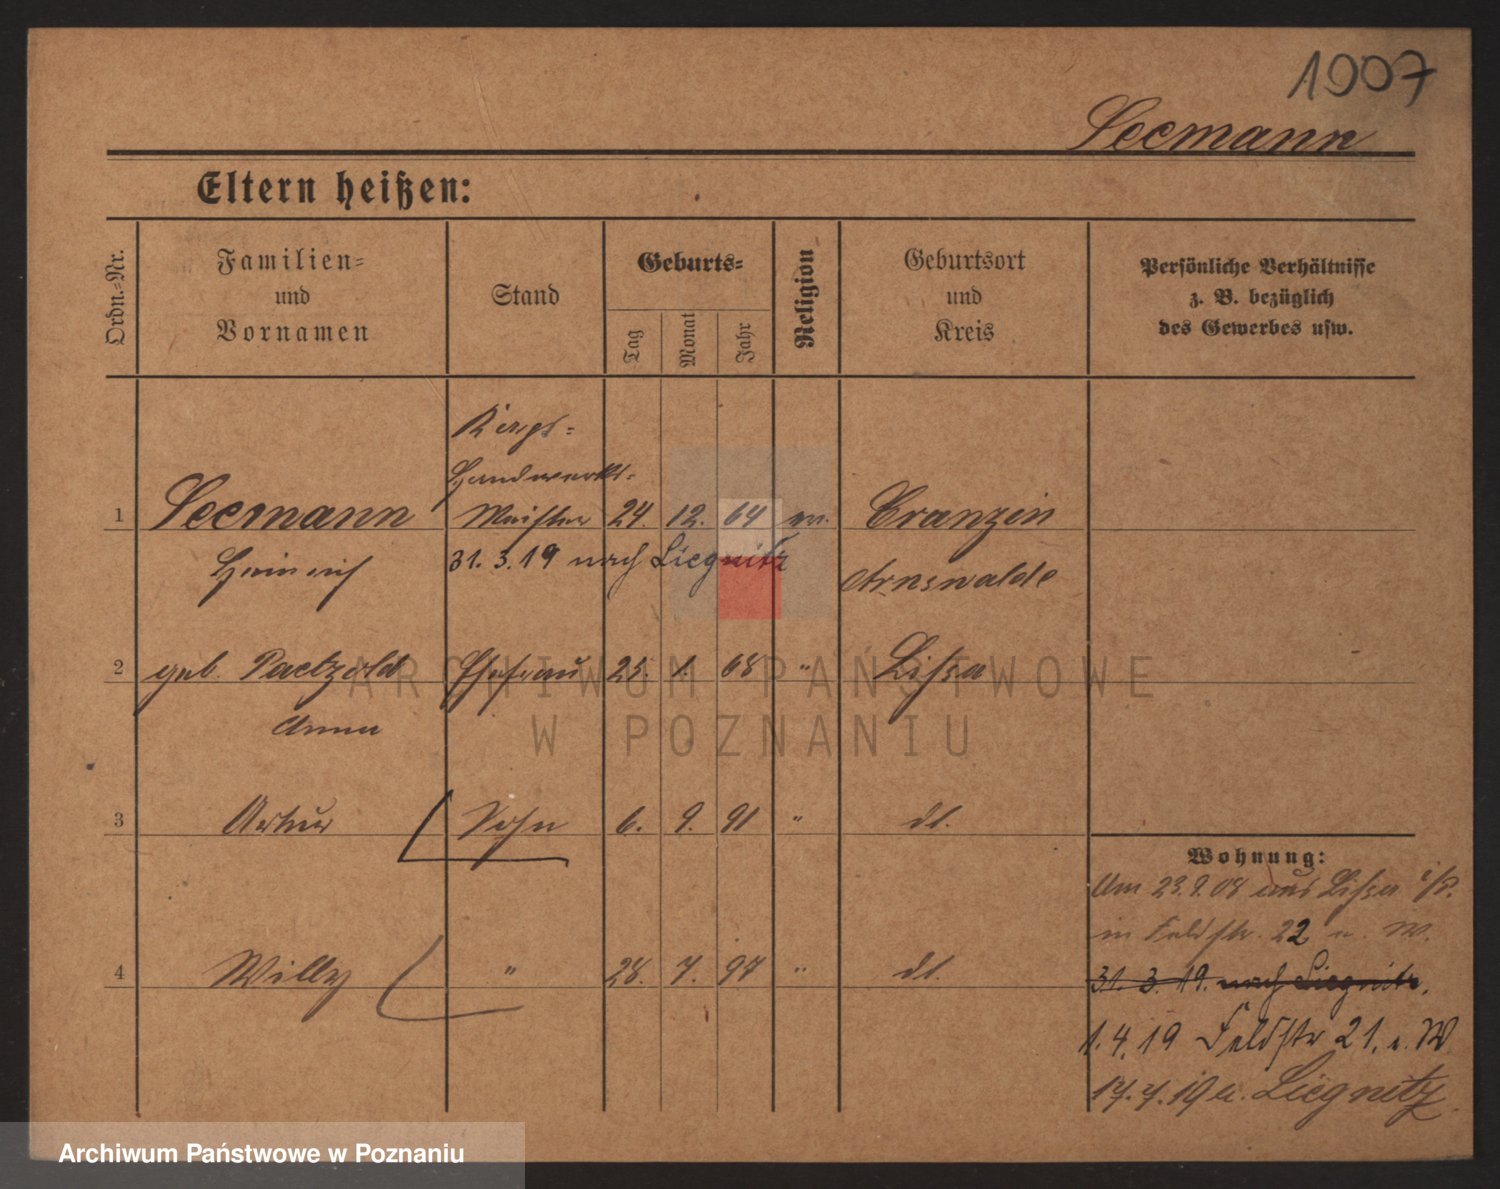 1907
Seemann
Eltern heißen:
Ordn.-Nr.
Familien-
und
Vornamen
Stand
Geburts-
Tag
Monat
Jahr
Religion
Geburtsort
und
Kreis
Persönliche Verhältnisse
z. B. bezüglich
des Gewerbes usw.
Handwerks-
1 Seemann Meister 24. 12. 64 ev. Cranzin
Heinrich 31. 3. 19 nach Liegnitz Arnswalde
2 geb. Paetzold Ehefrau 1. 68 " Lissa
Anna
3 Artur Sohn 6. 9. 91 " dt.
4 Willy " 28. 7. 97 " dt.
Wohnung:
Am 23.9.08 aus Lissa i/P.
in Feldstr. 22 W.
31. 3. 19. nach Liegnitz.
1. 4. 19 Feldstr 21. W
Liegnitz
ARCHIWUM PAŃSTWOWE
W POZNANIU
Archiwum Państwowe w Poznaniu